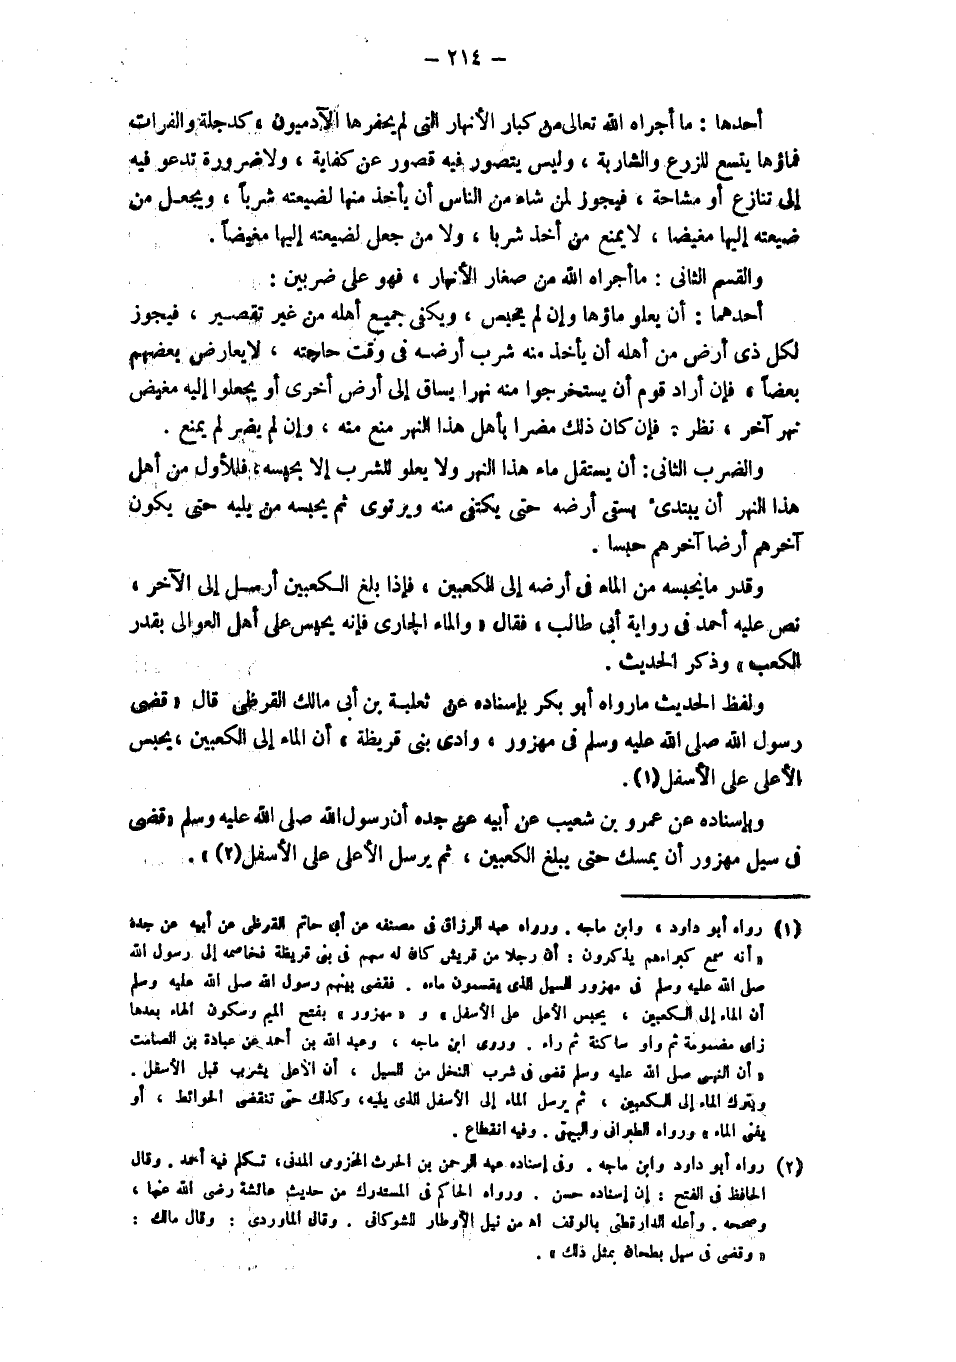 — ٢١٤ —
أحدها : ما أجراه الله تعالى من كبار الأنهار التى لم يحفرها الآدميون ، كدجلة والفرات
فماؤها يتسع للزرع والشاربة ، وليس يتصور فيه قصور عن كفاية ، ولاضرورة تدعو فيه
إلى تنازع أو مشاحة ، فيجوز لمن شاء من الناس أن يأخذ منها لضيعته شرباً ، ويجعل من
ضيعته إليها مغيضا ، لايمنع من أخذ شربا ، ولا من جعل لضيعته إليها مغيضاً .
والقسم الثانى : ماأجراه الله من صغار الأنهار ، فهو على ضربين :
أحدهما : أن يعلو ماؤها وإن لم يحبس ، ويكفى جميع أهله من غير تقصير ، فيجوز
لكل ذى أرض من أهله أن يأخذ منه شرب أرضه فى وقت حاجته ، لايعارض بعضهم
بعضاً ، فإن أراد قوم أن يستخرجوا منه نهرا يساق إلى أرض أخرى أو يجعلوا إليه مغيض
نهر آخر ، نظر : فإن كان ذلك مضرا بأهل هذا النهر منع منه ، وإن لم يضر لم يمنع .
والضرب الثانى: أن يستقل ماء هذا النهر ولا يعلو للشرب إلا بحبسه ، فللأول من أهل
هذا النهر أن يبتدئ بسقى أرضه حتى يكتفى منه ويرتوى ثم يحبسه من يليه حتى يكون
آخرهم أرضا آخرهم حبسا .
وقدر مايحبسه من الماء فى أرضه إلى الكعبين ، فإذا بلغ الكعبين أرسل إلى الآخر ،
نص عليه أحمد فى رواية أبى طالب ، فقال « والماء الجارى فإنه يحبس على أهل العوالى بقدر
الكعب » وذكر الحديث .
ولفظ الحديث مارواه أبو بكر بإسناده عن ثعلبة بن أبى مالك القرظى قال « قضى
رسول الله صلى الله عليه وسلم فى مهزور ، وادى بنى قريظة ، أن الماء إلى الكعبين ، يحبس
الأعلى على الأسفل(١) .
وبإسناده عن عمرو بن شعيب عن أبيه عن جده أن رسول الله صلى الله عليه وسلم « قضى
فى سيل مهزور أن يمسك حتى يبلغ الكعبين ، ثم يرسل الأعلى على الأسفل(٢) » .
(١) رواه أبو داود ، وابن ماجه . ورواه عبد الرزاق فى مصنفه عن أبى حاتم القرظى عن أبيه عن جده
« أنه سمع كبراءهم يذكرون : أن رجلا من قريش كان له سهم فى بنى قريظة فخاصمه إلى رسول الله
صلى الله عليه وسلم فى مهزور السيل الذى يقسمون ماءه . فقضى بينهم رسول الله صلى الله عليه وسلم
أن الماء إلى الكعبين ، يحبس الأعلى على الأسفل » و « مهزور » بفتح الميم وسكون الهاء بعدها
زاى مضمومة ثم واو ساكنة ثم راء . وروى ابن ماجه ، وعبد الله بن أحمد عن عبادة بن الصامت
« أن النبى صلى الله عليه وسلم قضى فى شرب النخل من السيل ، أن الأعلى يشرب قبل الأسفل .
ويترك الماء إلى الكعبين ، ثم يرسل الماء إلى الأسفل الذى يليه، وكذلك حتى تنقضى الحوائط ، أو
يفنى الماء » ورواه الطبرانى والبيهقى . وفيه انقطاع .
(٢) رواه أبو داود وابن ماجه . وفى إسناده عبد الرحمن بن الحرث المخزومى المدنى، تكلم فيه أحمد . وقال
الحافظ فى الفتح : إن إسناده حسن . ورواه الحاكم فى المستدرك من حديث عائشة رضى الله عنها ،
وصححه . وأعله الدارقطنى بالوقف اه من نيل الأوطار للشوكانى . وقال الماوردى : وقال مالك :
« وقضى فى سيل بطحان بمثل ذلك » .